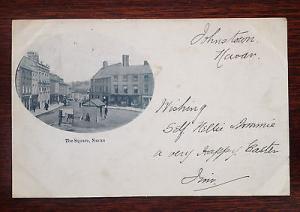 Johnstown,
Navan.
The Square, Navan
Wishing
Self Nellie Dommie
a very Happy Easter
Jim